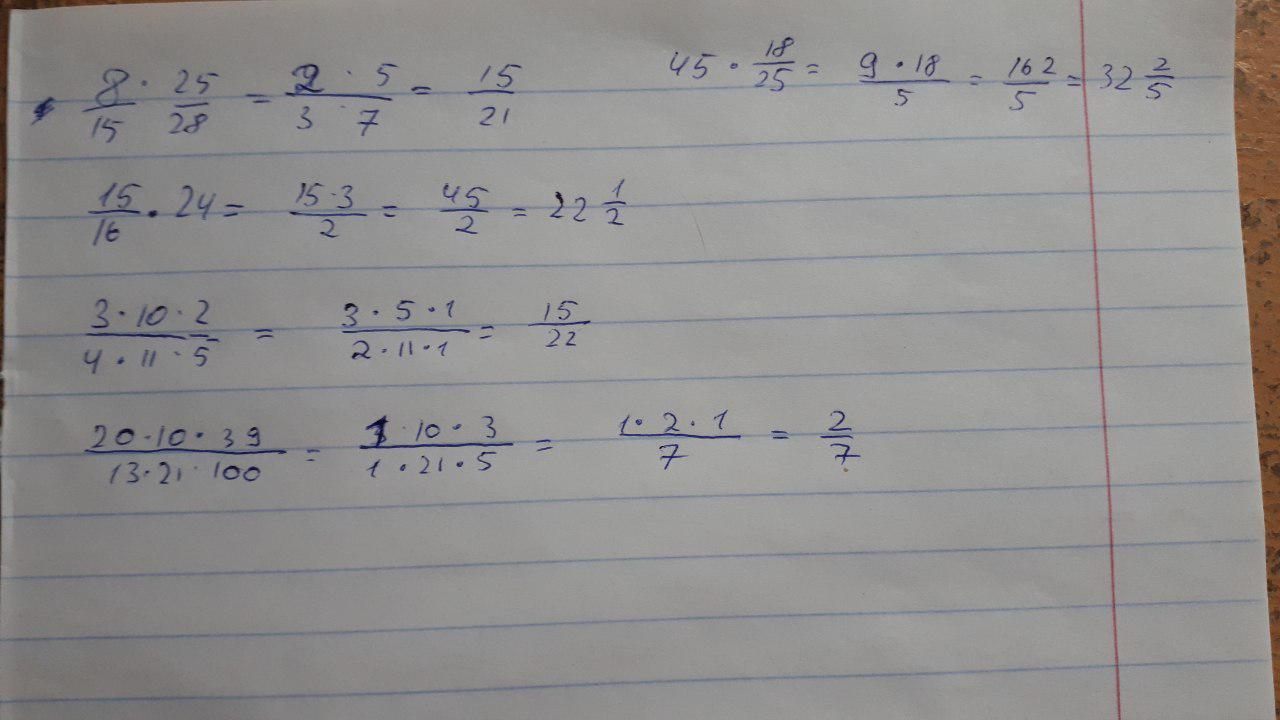 8/15 · 25/28 = 2 · 5 / 3 · 7 = 15/21
45 · 18/25 = 9 · 18 / 5 = 162/5 = 32 2/5
15/16 · 24 = 15 · 3 / 2 = 45/2 = 22 1/2
3 · 10 · 2 / 4 · 11 · 5 = 3 · 5 · 1 / 2 · 11 · 1 = 15/22
20 · 10 · 39 / 13 · 21 · 100 = 1 · 10 · 3 / 1 · 21 · 5 = 1 · 2 · 1 / 7 = 2/7